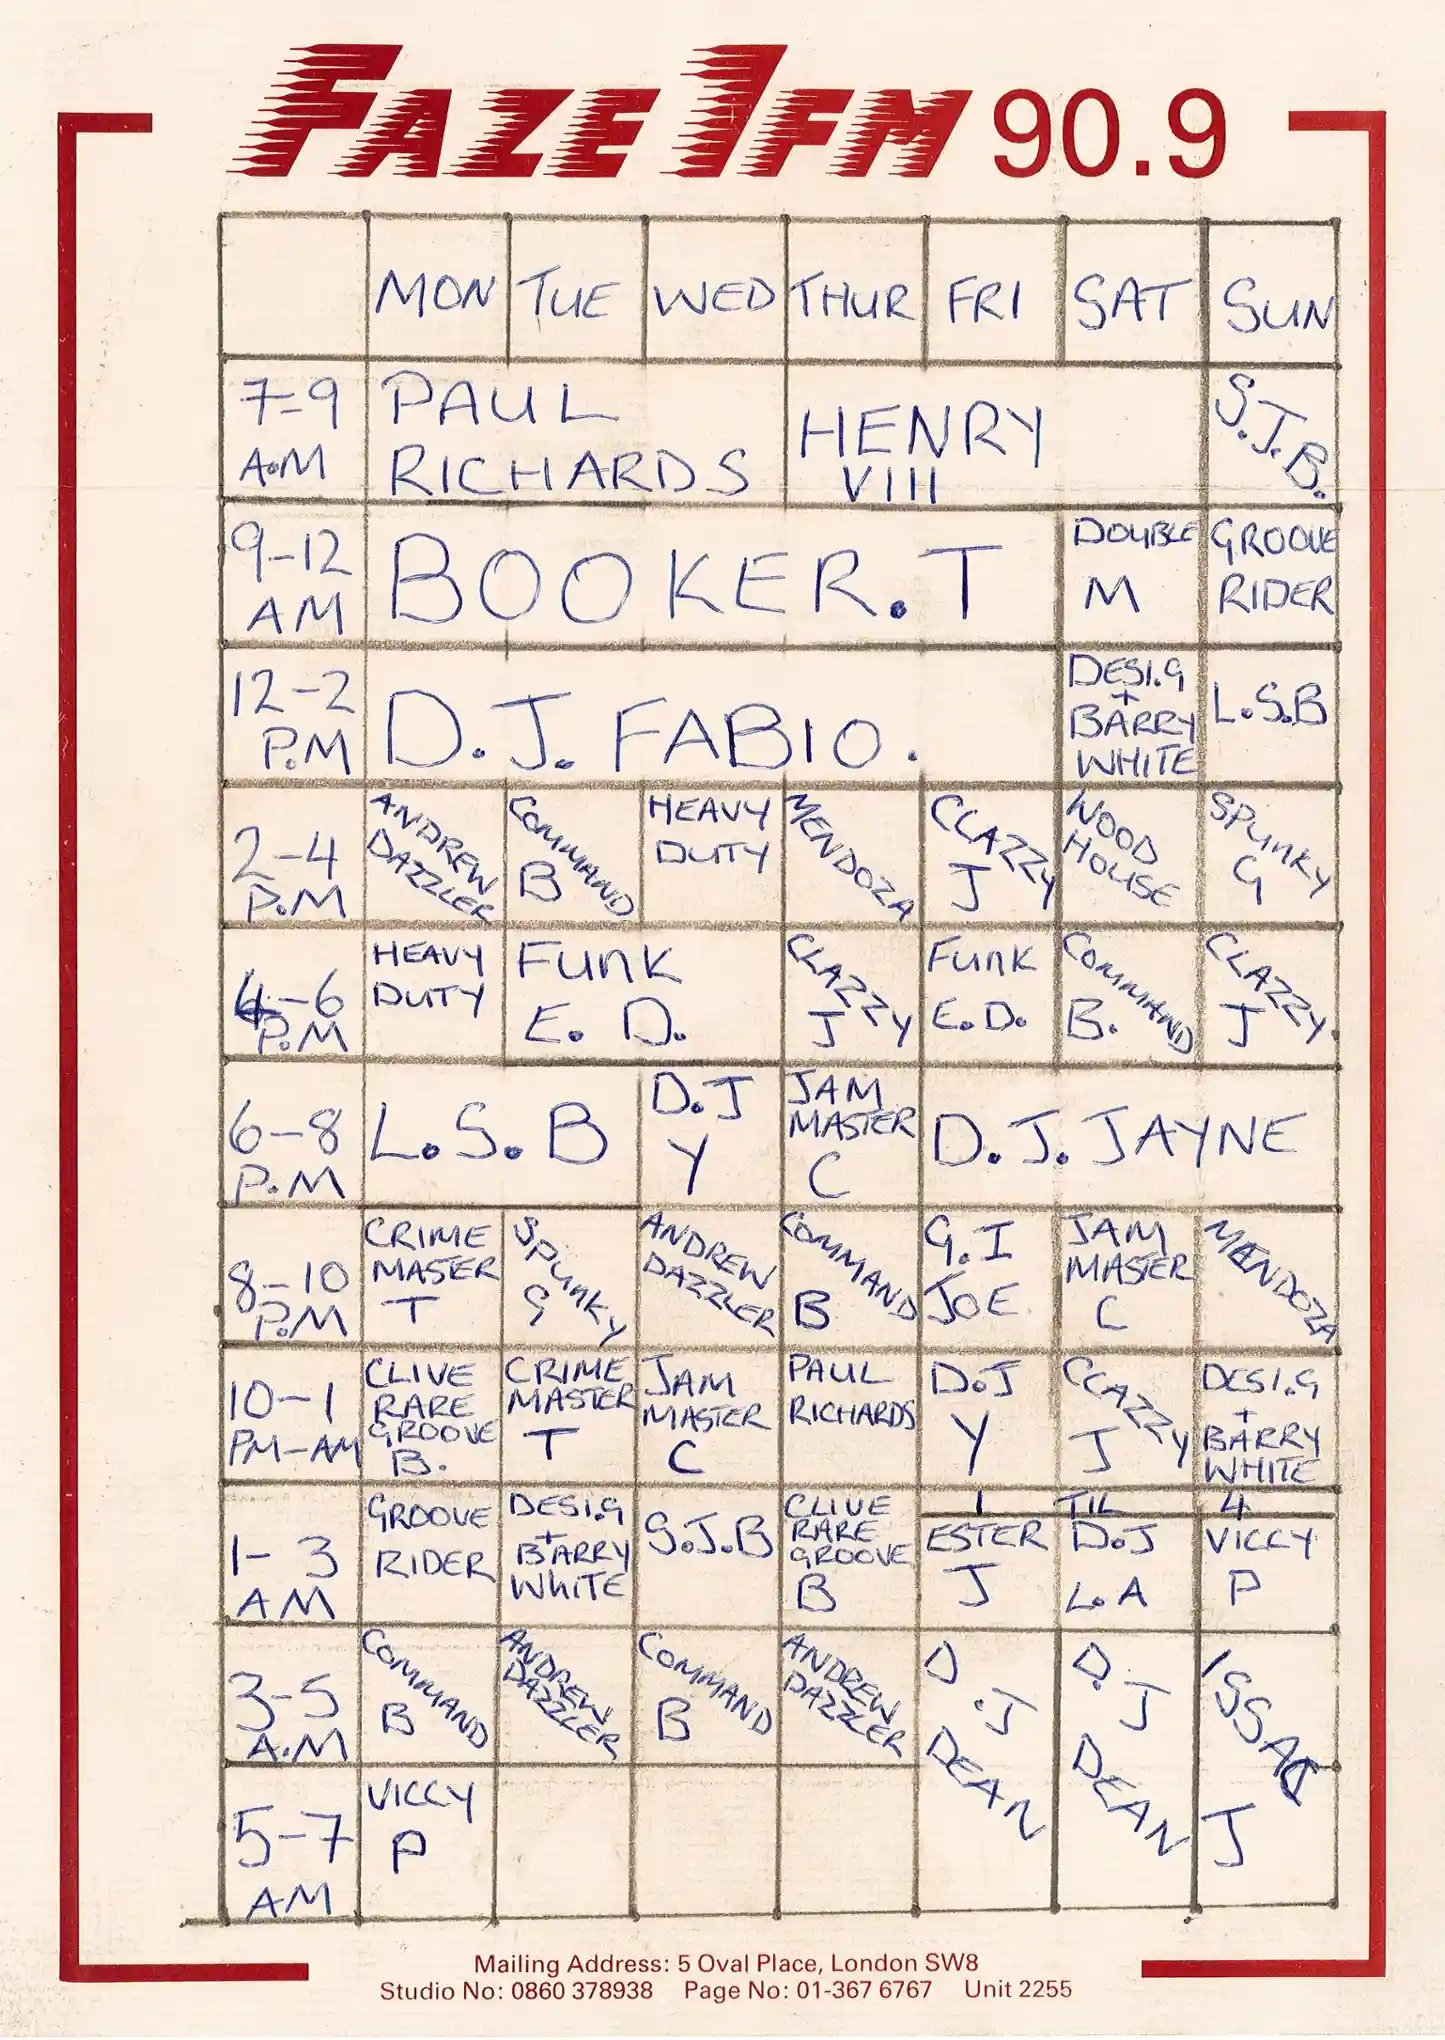 FAZE 1FM 90.9
MON TUE WED THUR FRI SAT SUN
7-9
A.M
PAUL
RICHARDS
HENRY
VIII
S.J.B.
9-12
AM
BOOKER.T
DOUBLE
M
GROOVE
RIDER
12-2
P.M
D.J. FABIO.
DESI.G
+
BARRY
WHITE
L.S.B
2-4
P.M
ANDREW
DAZZLER
COMMAND
B
HEAVY
DUTY
MENDOZA
CLAZZY
J
WOOD
HOUSE
SPUNKY
G
4-6
P.M
HEAVY
DUTY
FUNK
E. D.
CLAZZY
J
FUNK
E.D.
COMMAND
B.
CLAZZY.
J
6-8
P.M
L.S.B
D.J
Y
JAM
MASTER
C
D.J.JAYNE
8-10
P.M
CRIME
MASTER
T
SPUNKY
G
ANDREW
DAZZLER
COMMAND
B
G.I
JOE
JAM
MASTER
C
MENDOZA
10-1
PM-AM
CLIVE
RARE
GROOVE
B.
CRIME
MASTER
T
JAM
MASTER
C
PAUL
RICHARDS
D.J
Y
CLAZZY
J
DESI.G
+
BARRY
WHITE
1-3
AM
GROOVE
RIDER
DESI.G
+
BARRY
WHITE
S.J.B
CLIVE
RARE
GROOVE
B
1 TIL 4
ESTER
J
D.J
L.A
VICCY
P
3-5
A.M
COMMAND
B
ANDREW
DAZZLER
COMMAND
B
ANDREW
DAZZLER
D.J
DEAN
D.J
DEAN
ISSAC
J
5-7
AM
VICCY
P
Mailing Address: 5 Oval Place, London SW8
Studio No: 0860 378938 Page No: 01-367 6767 Unit 2255